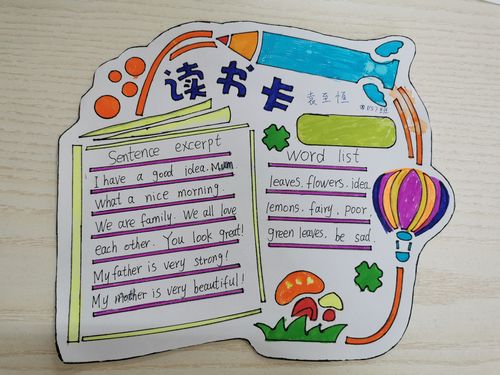 读书卡
袁至恒
Sentence excerpt
I have a good idea. Mum.
What a nice morning.
We are family. We all love
each other. You look great!
My father is very strong!
My mother is very beautiful!
word list
leaves. flowers. idea
lemons. fairy. poor.
green leaves. be sad.